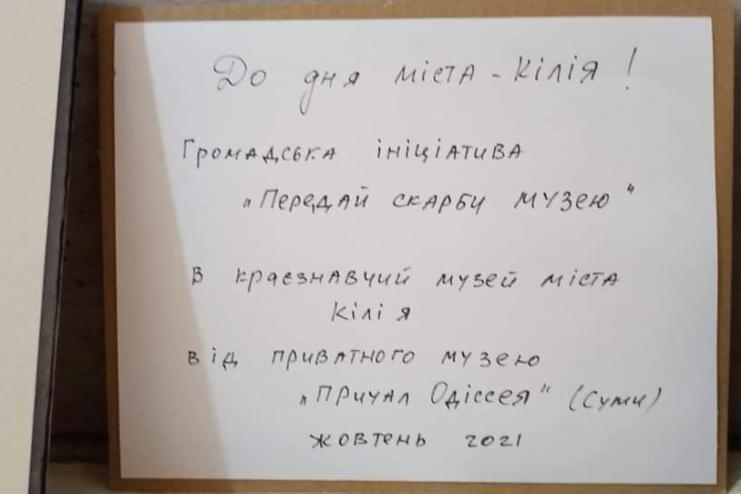 До дня міста - Кілія!
Громадська ініціатива
„Передай скарби музею"
В краєзнавчий музей міста
Кілія
від приватного музею
„Причал Одіссея" (Суми)
жовтень 2021